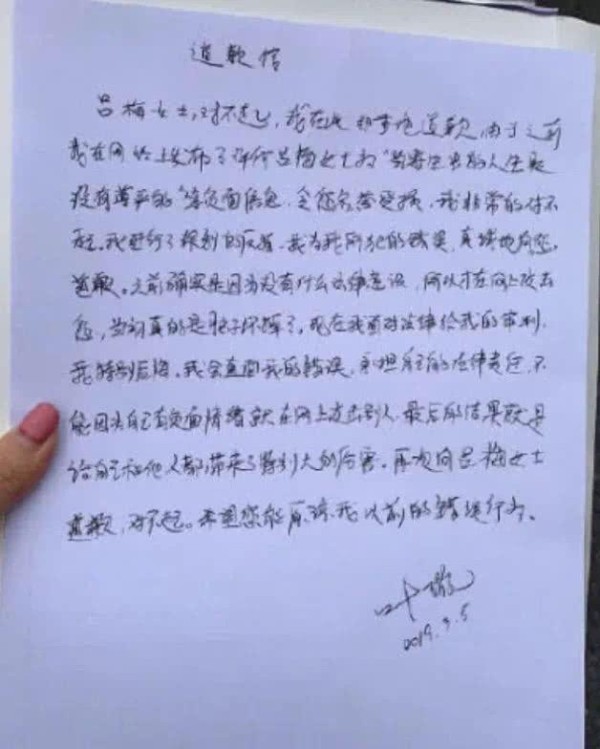 道歉信
吕梅女士，对不起，我在此郑重道歉，由于之前
我在网络上发布了评价吕梅女士为“的人生是
没有尊严的”等负面信息，令您名誉受损，我非常的对不
起。我进行了深刻的反省，我为我所犯的错误，真诚地向您
道歉。之前确实是因为没有什么法律意识，所以才在网上攻击
您，当初真的是脑子坏掉了，现在我面对法律给我的审判，
我特别后悔。我会直面我的错误，承担自己的法律责任，不
能因为自己有负面情绪就在网上攻击别人，最后的结果就是
给自己和他人都带来了特别大的伤害。再次向吕梅女士
道歉，对不起。希望您能原谅我以前的错误行为。
叶
2019.3.5